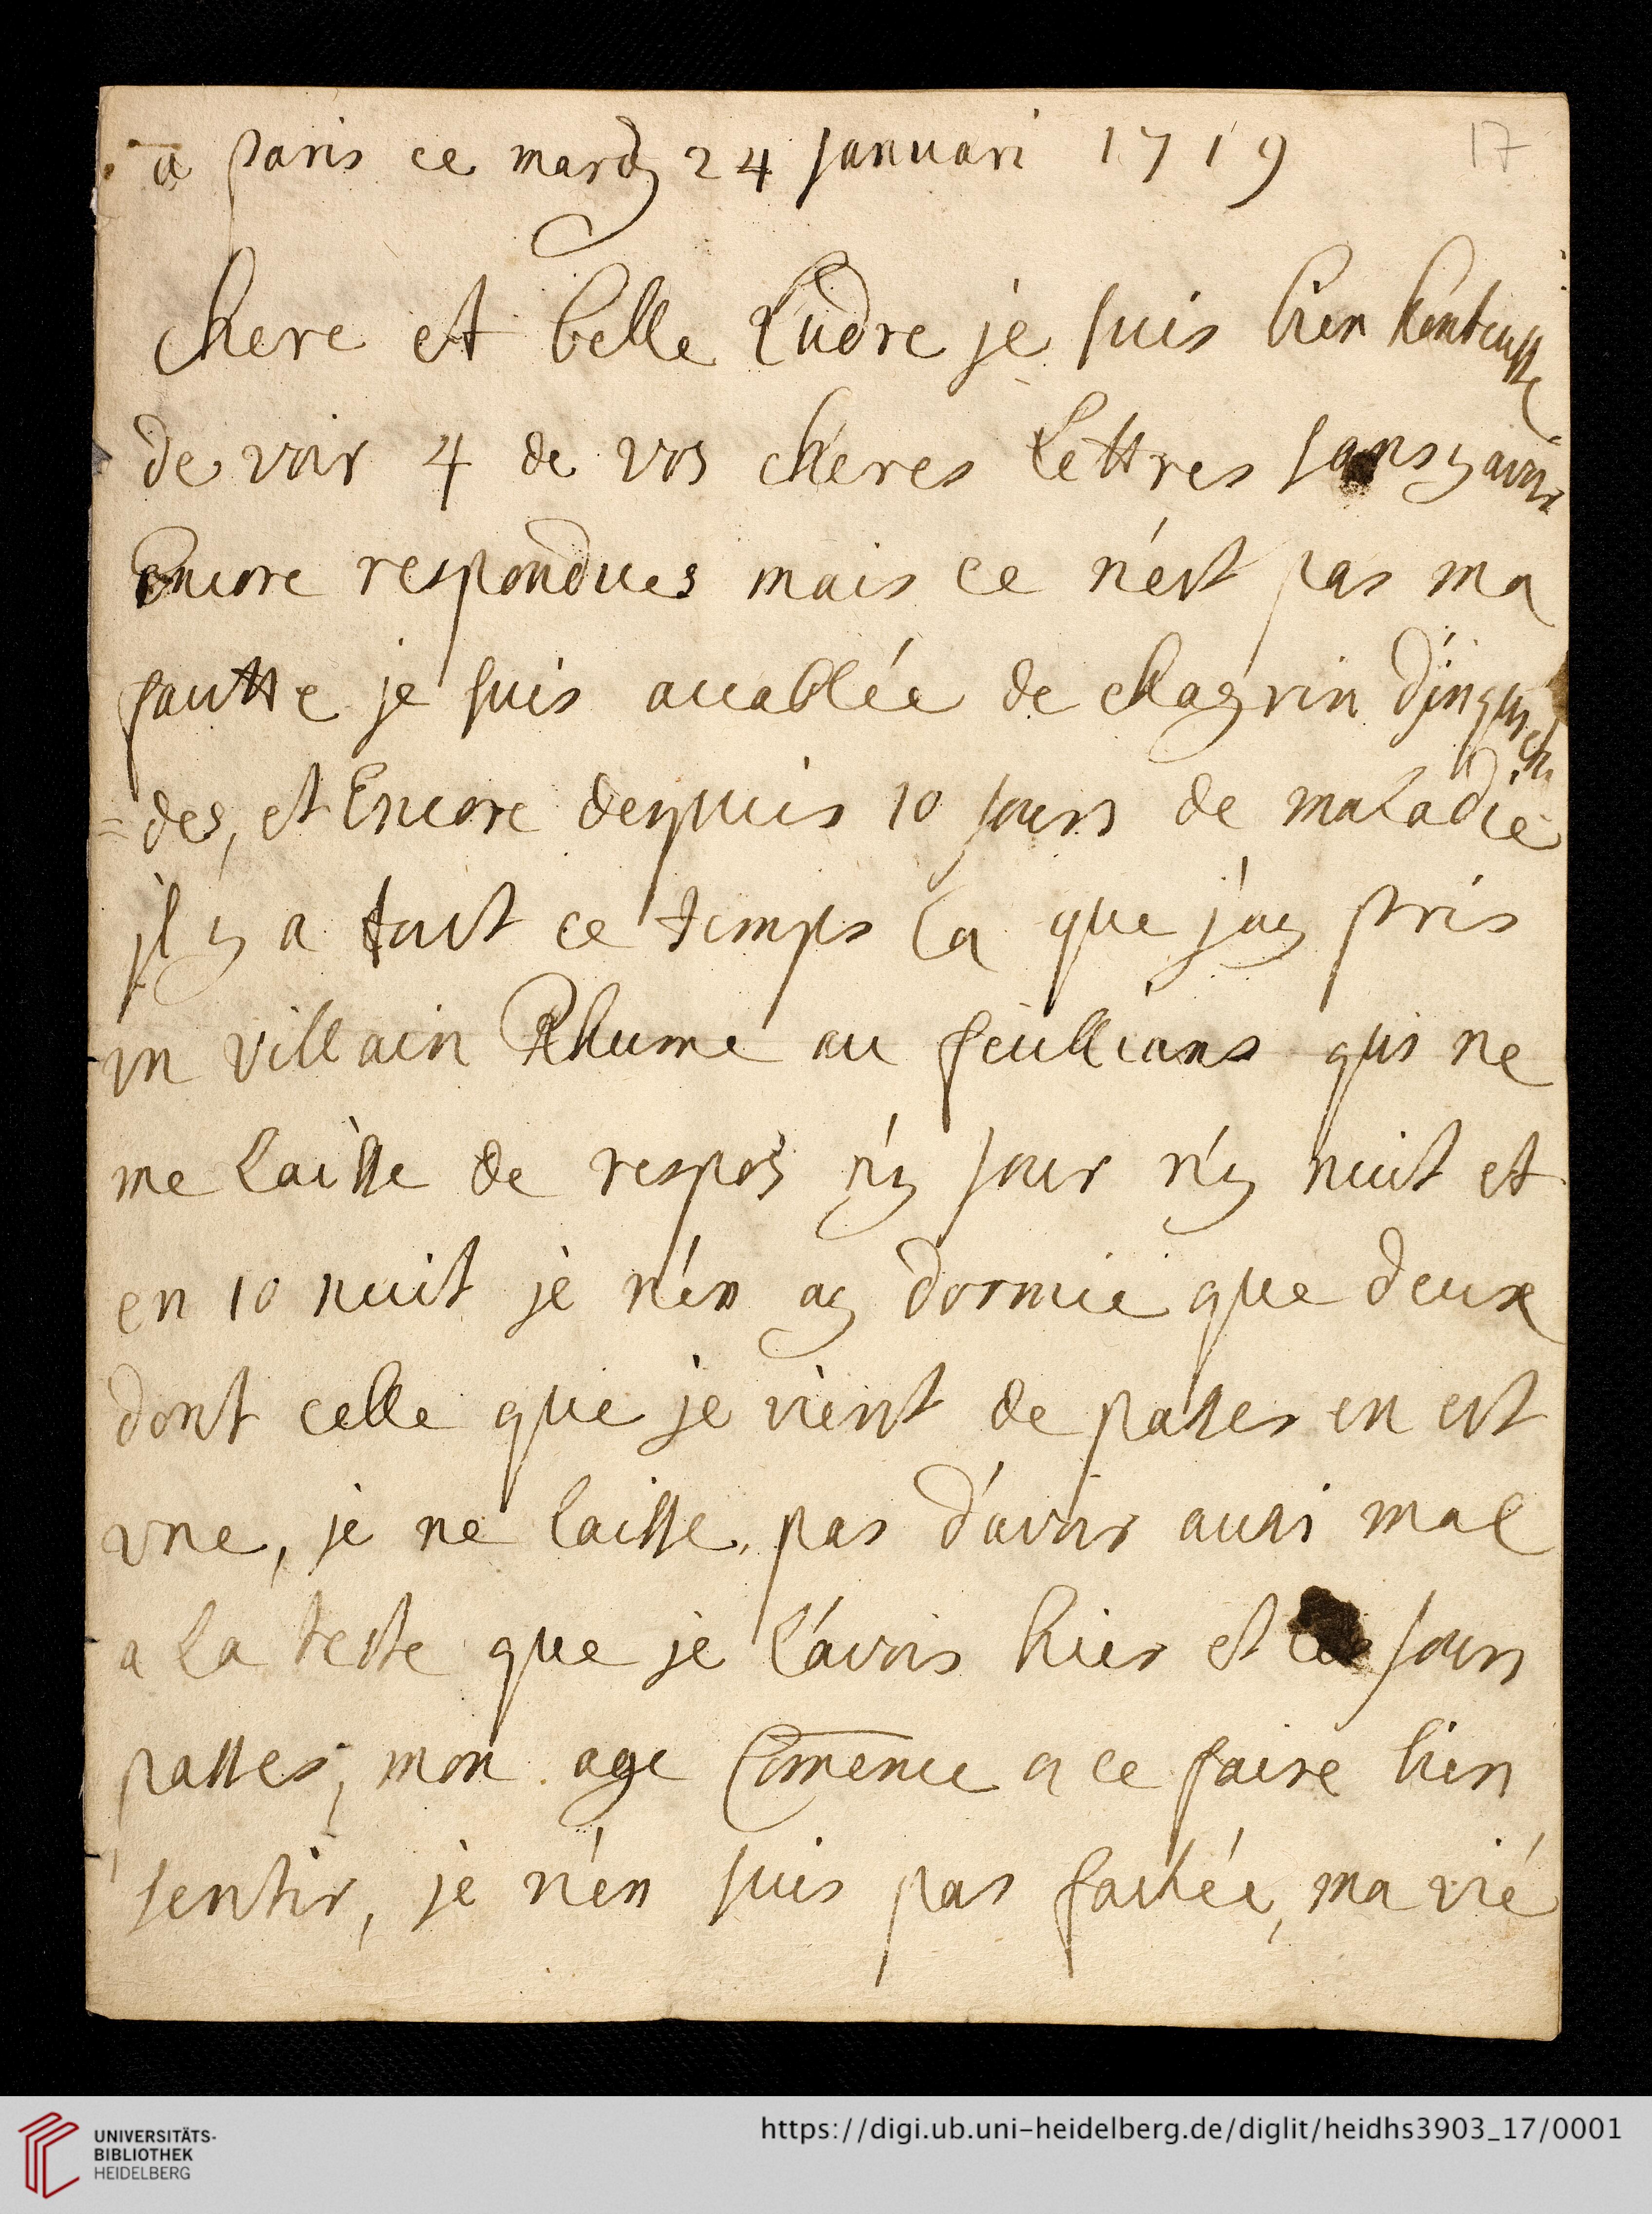 a paris ce mardy 24 Januari 1719
17
chere et belle Ludre je suis bien honteusse
de voir 4 de vos cheres lettres sans y avoir
Encore respondues mais ce n'est pas ma
fautte je suis accablée de chagrin d'inquiétu
=des, et Encore depuis 10 jours de maladie
jl y a tout ce temps la que j'ay pris
vn villain Rhume au feüllians qui ne
me laisse de respos n'y jour n'y nuit et
en 10 nuit je n'en ay dormie que deux
dont celle que je vient de passer en est
vne, je ne laisse pas d'avoir aussi mal
a la teste que je l'avois hier et ces jours
passes, mon age Comence a ce faire bien
sentir, je n'en suis pas fachée, ma vie
UNIVERSITÄTS-
BIBLIOTHEK
HEIDELBERG
https://digi.ub.uni-heidelberg.de/diglit/heidhs3903_17/0001